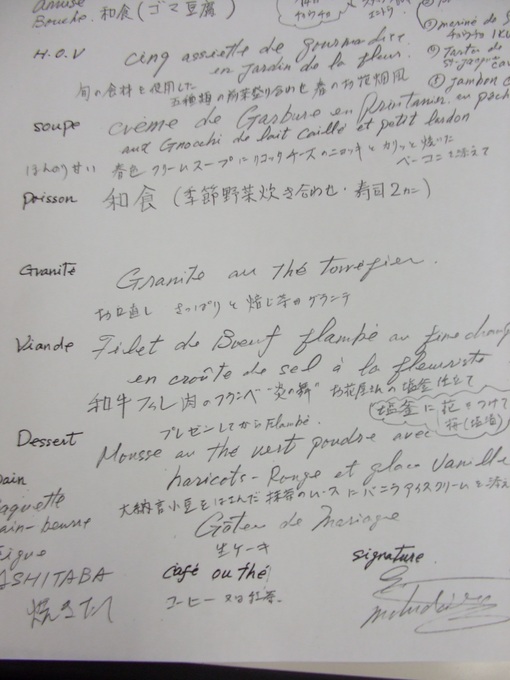 Amuse
Bouche. 和食 (ゴマ豆腐)
H.O.V cinq assiette de gourmandise
en Jardin de la fleur.
旬の食料を使用した
五種類の前菜盛り合わせ 春のお花畑風
① mariné de
② Tartar de
St-Jaques
③ Jambon
soupe crème de Garbure en Printanier en
aux Gnocchi de lait caillé et petit lardon
ほんのり甘い 春色クリームスープにリコッタチーズのニョッキとカリッと焼いた
ベーコンを添えて
Poisson 和食 (季節野菜炊き合わせ・寿司2カン)
Granité Granite au thé torréfier.
お口直し さっぱりと焙じ茶のグラニテ
Viande Filet de Boeuf flambé au fine champ
en croûte de sel à la fleuriste
和牛フィレ肉のフランベ "炎の舞" お花屋さんの塩釜仕立て
プレゼンしてからflambé.
塩釜に花をつけて
Dessert Mousse au thé vert poudre avec
haricots-Rouge et glace Vanille
大納言小豆をしのばせた抹茶のムースにバニラアイスクリームを添え
Gâteau de Mariage
生ケーキ
Pain
Baguette
Pain-beurre
Figue
ASHITABA
焼きたて
café ou thé
コーヒー 又は 紅茶
signature.